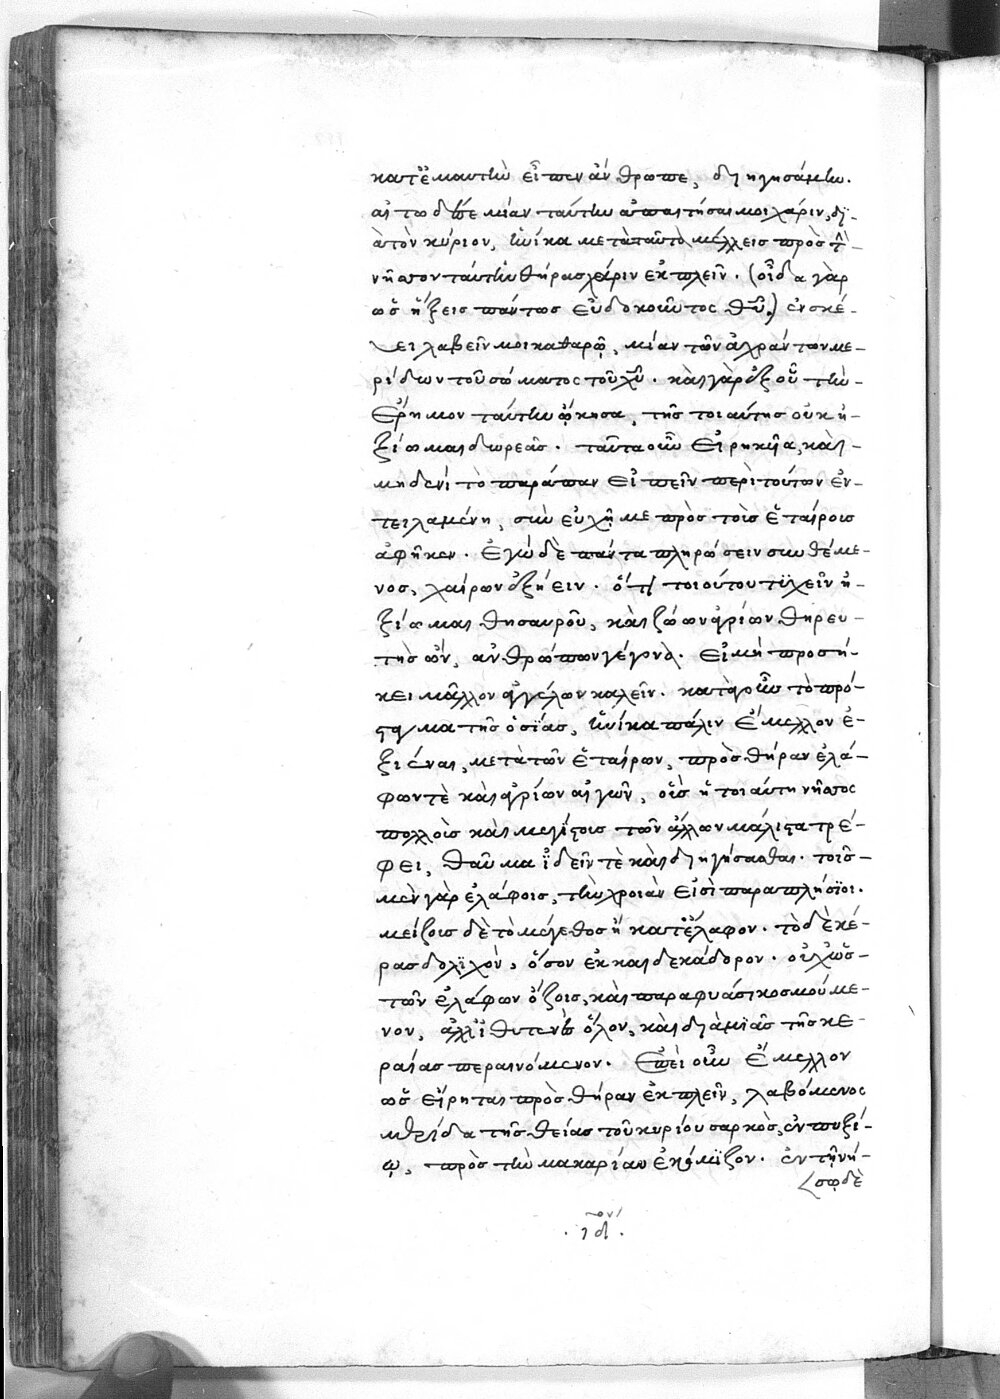 κατ' ἐμαυτὴν εἶπεν ἄνθρωπε, διηγησάμην.
αἰτῶ δέ σε μίαν ταύτην ἀπαιτῆσαί μοι χάριν, δι-
ὰ τὸν κύριον, ἡνίκα μετὰ ταῦτα μέλλεις πρὸς τὴν
νῆσον ταύτην θήρας χάριν ἐκπλεῖν. (οἶδα γὰρ
ὡς ἥξεις πάντως εὐδοκοῦντος θῦ.) ἐν σκέ-
ει λαβεῖν μοι καθαρῷ, μίαν τῶν ἀχράντων με-
ρίδων τοῦ σώματος τοῦ χῦ. καὶ γὰρ ἐξ οὗ τὴν
ἔρημον ταύτην ᾤκησα, τῆς τοιαύτης οὐκ ἠ-
ξίωμαι δωρεᾶς. ταῦτα οὖν εἰρηκυῖα, καὶ
μηδενὶ τὸ παράπαν εἰπεῖν περὶ τούτων ἐν-
τειλαμένη, σὺν εὐχῇ με πρὸς τοὺς ἑταίροις
ἀφῆκεν. ἐγὼ δὲ πάντα πληρώσειν συνθέμε-
νος, χαίρων ἐξῄειν. ὅτι τοιούτου τυχεῖν ἠ-
ξίωμαι θησαυροῦ, καὶ ζώων ἀγρίων θηρευ-
τὴς ὢν, ἀνθρώπων γέγονα. εἰ μὴ προσή-
κει μᾶλλον ἀγγέλων καλεῖν. κατὰ γοῦν τὸ πρό-
σταγμα τῆς ὁσίας, ἡνίκα πάλιν ἔμελλον ἐ-
ξιέναι, μετὰ τῶν ἑταίρων, πρὸς θήραν ἐλά-
φων τὲ καὶ ἀγρίων αἰγῶν, οἷς ἡ τοιαύτη νῆσος
πολλοῖς καὶ μεγίστοις τῶν ἄλλων μάλιστα τρέ-
φει, θαῦμα ἰδεῖν τὲ καὶ διηγήσασθαι. τοῖς
μὲν γὰρ ἐλάφοις, τὴν χροιὰν εἰσὶ παραπλήσιοι.
μείζοις δὲ τὸ μέγεθος ἢ κατ' ἔλαφον. τὸ δὲ κέ-
ρας δολιχὸν, ὅσον ἐκκαιδεκάδορον. οὐχ ὡς
τῶν ἐλάφων ὄζοις, καὶ παραφυάσι κοσμούμε-
νον, ἀλλ' ἰθυτενὲς ὅλον, καὶ διὰ μιᾶς τῆς κε-
ραίας περαινόμενον. Ἐπεὶ οὖν ἔμελλον
ὡς εἴρηται πρὸς θήραν ἐκπλεῖν, λαβόμενος
μερίδα τῆς θείας τοῦ κυρίου σαρκὸς, ἐν πυξί-
ῳ, πρὸς τὴν μακαρίαν ἐκόμιζον. ἐν τῇ νή-
σῳ δὲ